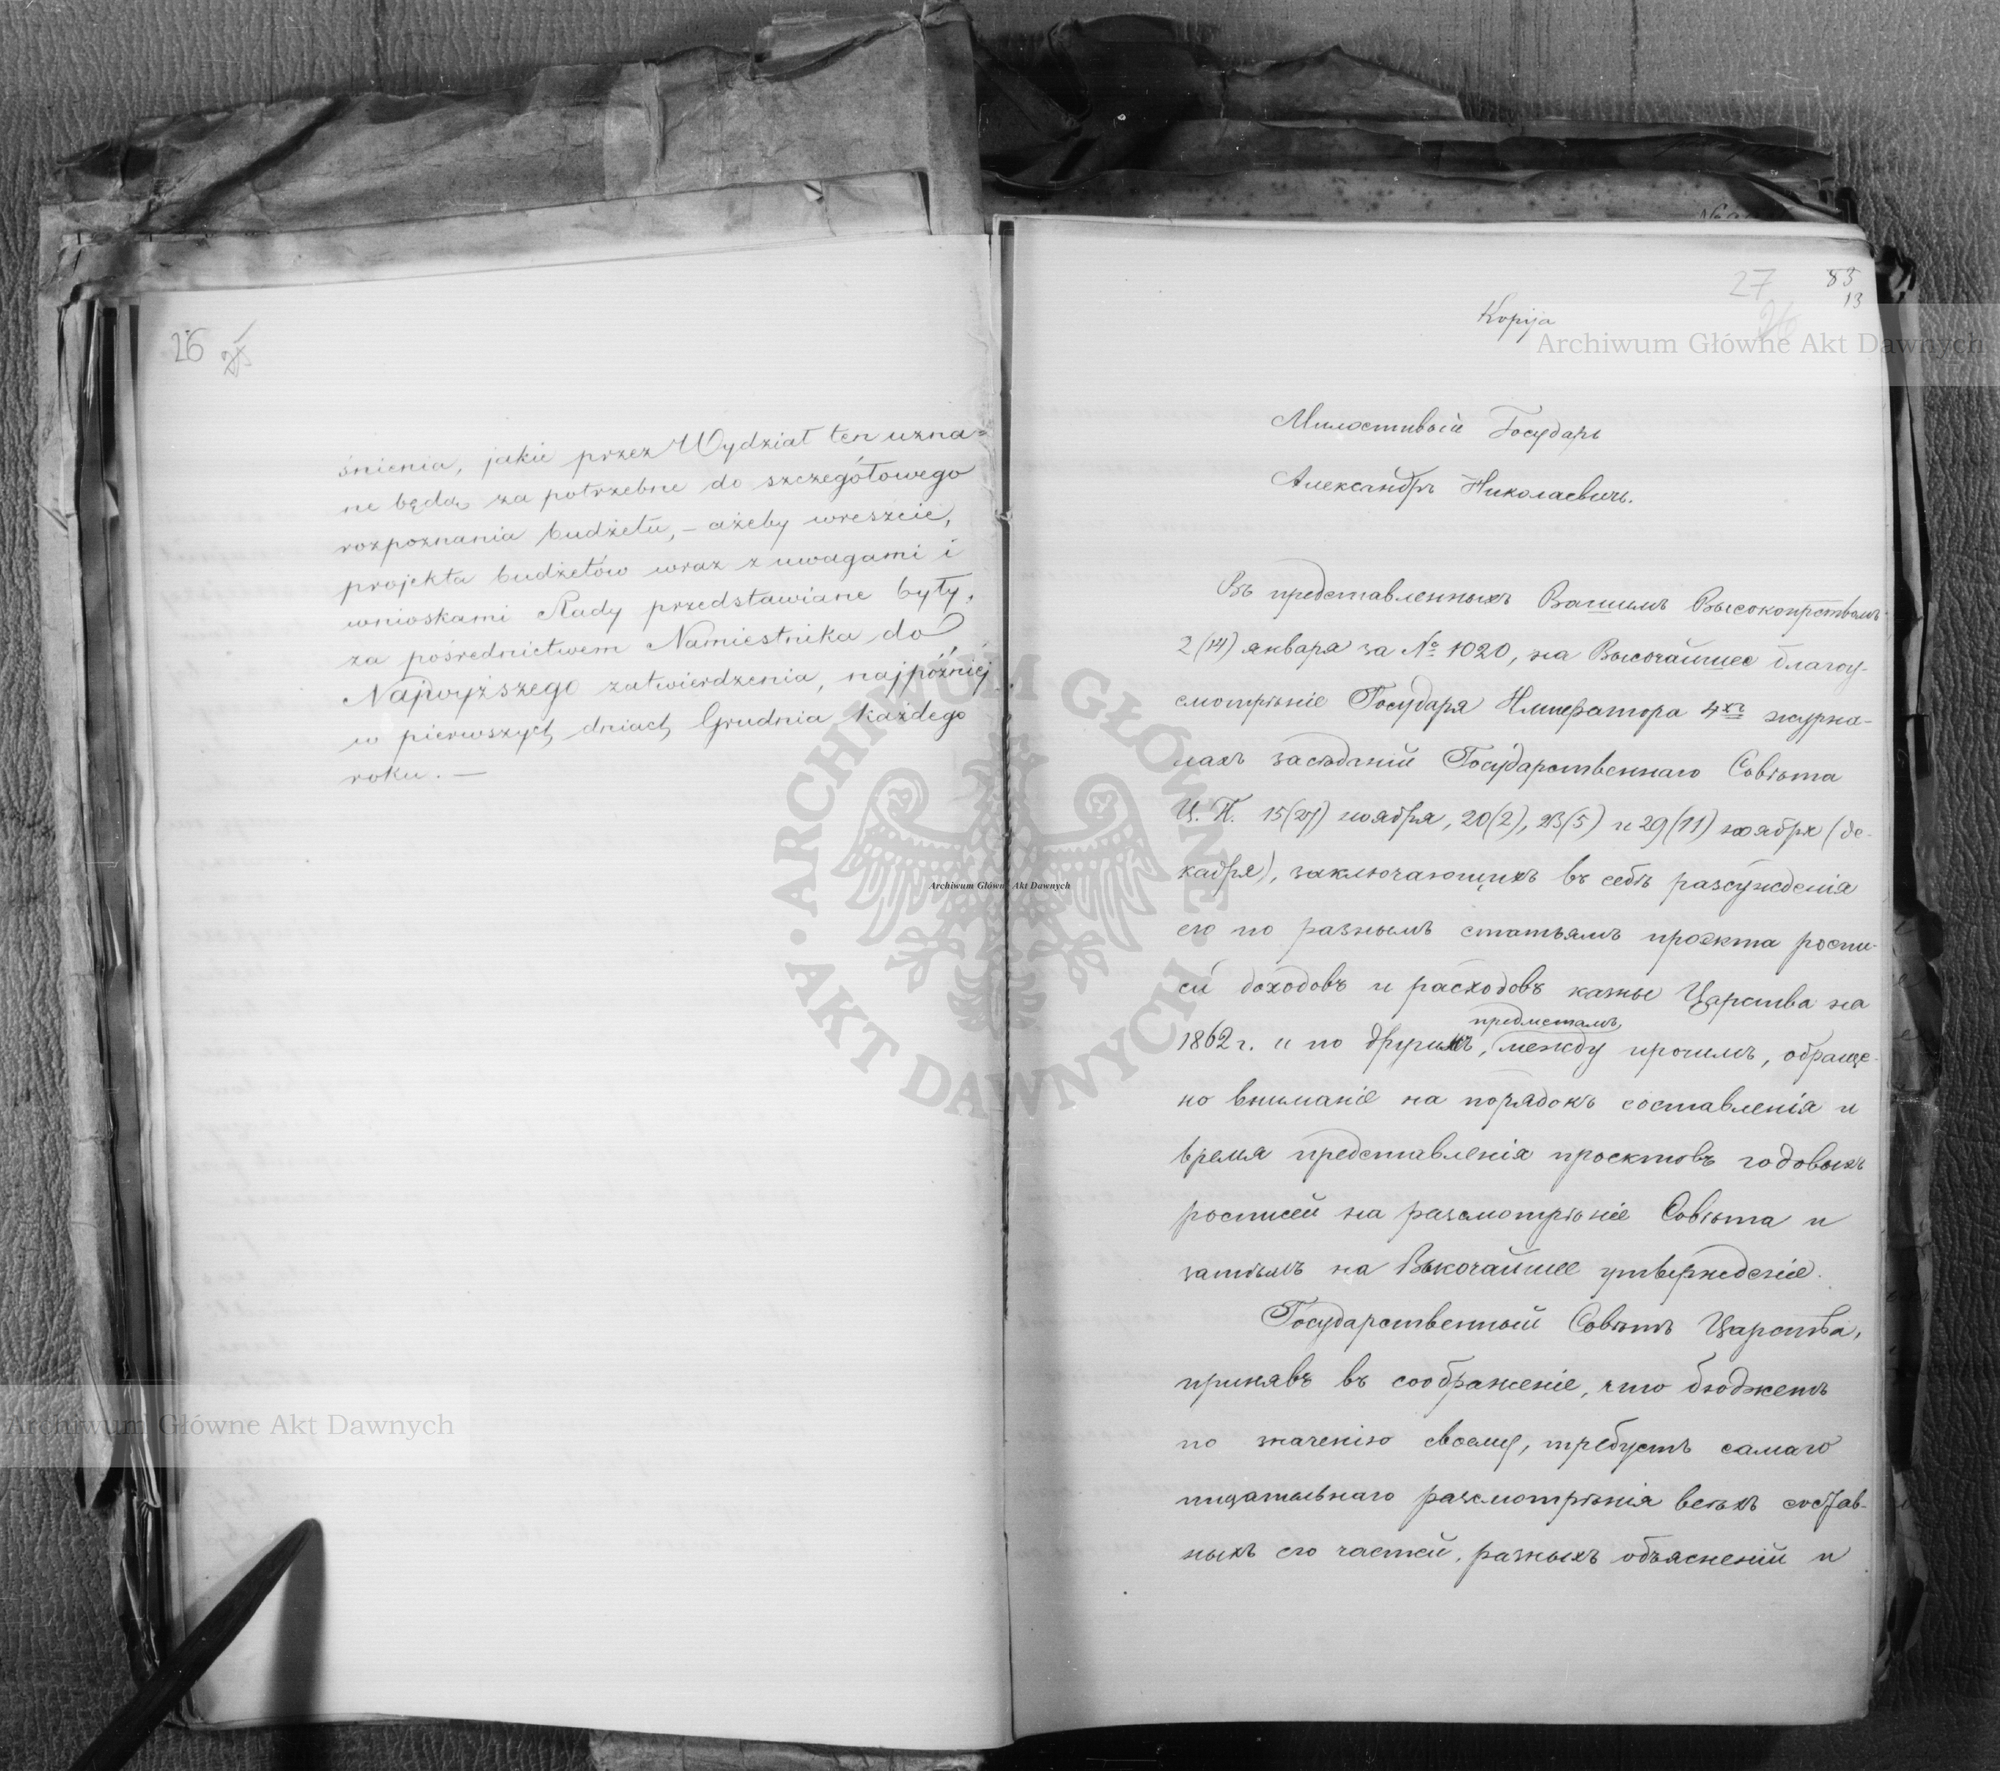 26 25
śnienia, jakie przez Wydział ten uzna=
ne będą za potrzebne do szczegółowego
rozpoznania budżetu, – ażeby wreszcie,
projekta budżetów wraz z uwagami i
wnioskami Rady przedstawiane były,
za pośrednictwem Namiestnika do
Najwyższego zatwierdzenia, najpóźniej
w pierwszych dniach Grudnia każdego
roku. —
27 83
13
26
Kopija
Милостивый Государь
Александръ Николаевичъ.
Въ представленныхъ Вашимъ Высокопрствомъ
2 (14) января за № 1020, на Высочайшее благоу-
смотрѣніе Государя Императора 4хъ журна-
лахъ засѣданій Государственнаго Совѣта
Ц. П. 15(27) ноября, 20(2), 23(5) и 29(11) ноября (де-
кабря), заключающихъ въ себѣ разсужденія
его по разнымъ статьямъ проэкта роспи-
си доходовъ и расходовъ казны Царства на
предметамъ,
1862 г. и по другимъ, между прочимъ, обраще-
но вниманіе на порядокъ составленія и
время представленія проектовъ годовыхъ
росписей на разсмотрѣніе Совѣта и
затѣмъ на Высочайшее утвержденіе.
Государственный Совѣтъ Царства,
принявъ въ соображеніе, что бюджетъ
по значенію своему, требуетъ самаго
тщательнаго разсмотрѣнія всѣхъ состав-
ныхъ его частей, разныхъ объясненій и
Archiwum Główne Akt Dawnych
Archiwum Główne Akt Dawnych
Archiwum Główne Akt Dawnych
ARCHIWUM GŁÓWNE • AKT DAWNYCH •